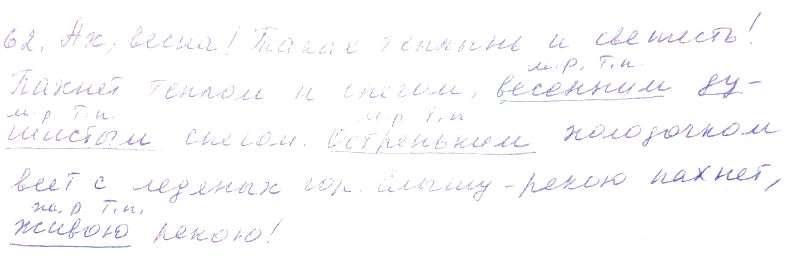 62. Ах, весна! Такая теплынь и свежесть!
м.р. Т.п.
Пахнет теплом и снегом, весенним ду-
м.р Т.п. м.р Т.п
шистым снегом. Остреньким холодочком
веет с ледяных гор. Слышу - рекою пахнет,
ж.р Т.п.
живою рекою!